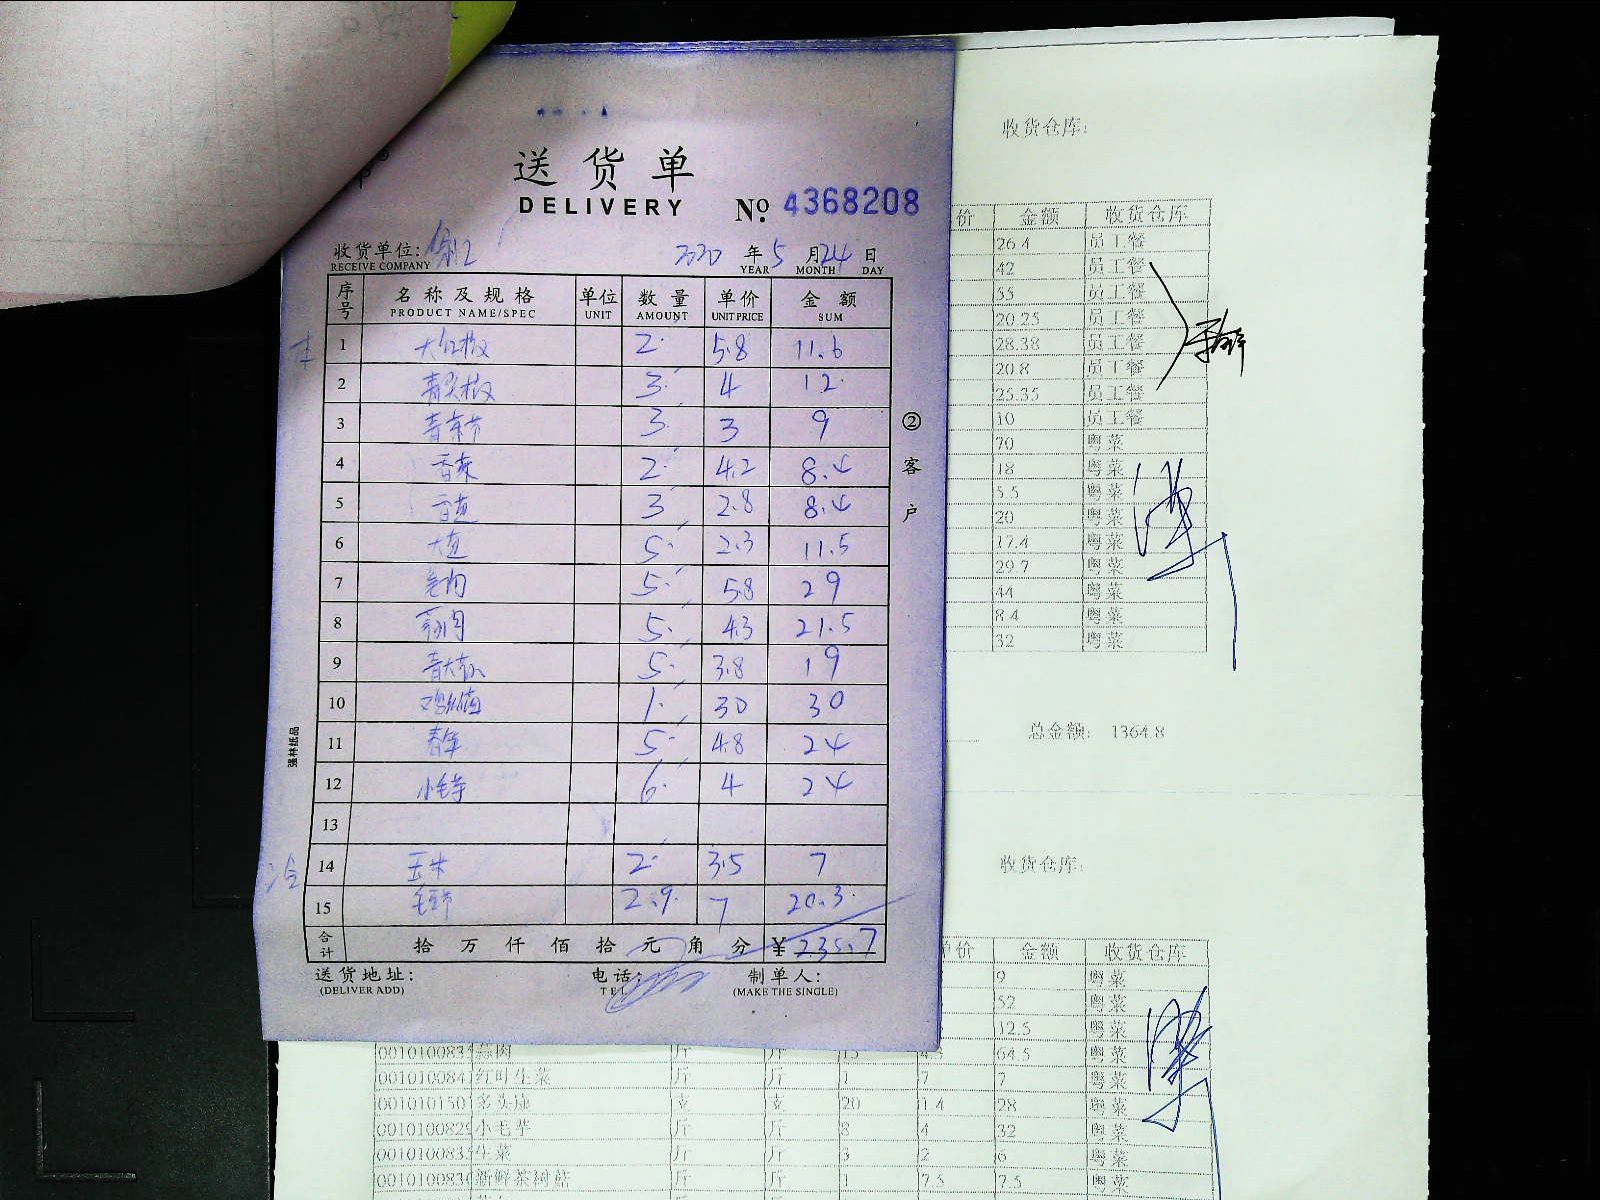 送货单
DELIVERY
Nº 4368208
收货单位:
RECEIVE COMPANY
2020 年 5 月 24 日
YEAR MONTH DAY
序号 名称及规格 单位 数量 单价 金额
PRODUCT NAME/SPEC UNIT AMOUNT UNIT PRICE SUM
1 大红椒 2 5.8 11.6
2 青尖椒 3 4 12
3 3 3 9
4 香菜 2 4.2 8.4
5 香葱 3 2.8 8.4
6 大葱 5 2.3 11.5
7 5 5.8 29
8 蒜肉 5 4.3 21.5
9 5 3.8 19
10 1 30 30
11 5 4.8 24
12 小毛芋 6 4 24
13
14 玉米 2 3.5 7
15 2.9 7 20.3
合计 拾 万 仟 佰 拾 元 角 分 ¥ 235.7
送货地址: 电话: 制单人:
(DELIVER ADD) TEL (MAKE THE SINGLE)
②客户
强林纸品
收货仓库:
价 金额 收货仓库
26.4 员工餐
42 员工餐
55 员工餐
20.25 员工餐
28.38 员工餐
20.8 员工餐
25.35 员工餐
10 员工餐
70 粤菜
18 粤菜
5.5 粤菜
20 粤菜
17.4 粤菜
29.7 粤菜
44 粤菜
8.4 粤菜
32 粤菜
总金额: 1364.8
收货仓库:
单价 金额 收货仓库
9 粤菜
52 粤菜
12.5 粤菜
蒜肉 斤 斤 15 64.5 粤菜
红叶生菜 斤 斤 1 7 7 粤菜
支 支 20 1.4 28 粤菜
小毛芋 斤 斤 8 4 32 粤菜
生菜 斤 斤 3 2 6 粤菜
新鲜茶树菇 斤 斤 1 7.5 7.5 粤菜